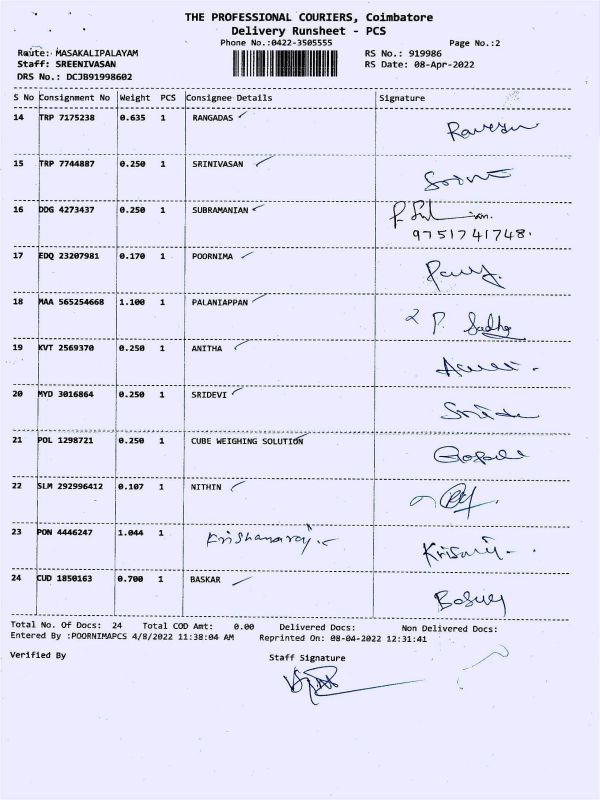 THE PROFESSIONAL COURIERS, Coimbatore
Delivery Runsheet - PCS
Phone No.:0422-3505555 Page No.:2
Route: MASAKALIPALAYAM RS No.: 919986
Staff: SREENIVASAN RS Date: 08-Apr-2022
DRS No.: DCJB91998602
S No Consignment No Weight PCS Consignee Details Signature
14 TRP 7175238 0.635 1 RANGADAS
15 TRP 7744887 0.250 1 SRINIVASAN
16 DDG 4273437 0.250 1 SUBRAMANIAN
9751741748.
17 EDQ 23207981 0.170 1 POORNIMA
18 MAA 565254668 1.100 1 PALANIAPPAN P. Sadha
19 KVT 2569370 0.250 1 ANITHA
20 MYD 3016864 0.250 1 SRIDEVI
21 POL 1298721 0.250 1 CUBE WEIGHING SOLUTION
22 SLM 292996412 0.107 1 NITHIN
23 PON 4446247 1.044 1 Krishanaraj
24 CUD 1850163 0.700 1 BASKAR
Total No. Of Docs: 24 Total COD Amt: 0.00 Delivered Docs: Non Delivered Docs:
Entered By :POORNIMAPCS 4/8/2022 11:38:04 AM Reprinted On: 08-04-2022 12:31:41
Verified By Staff Signature